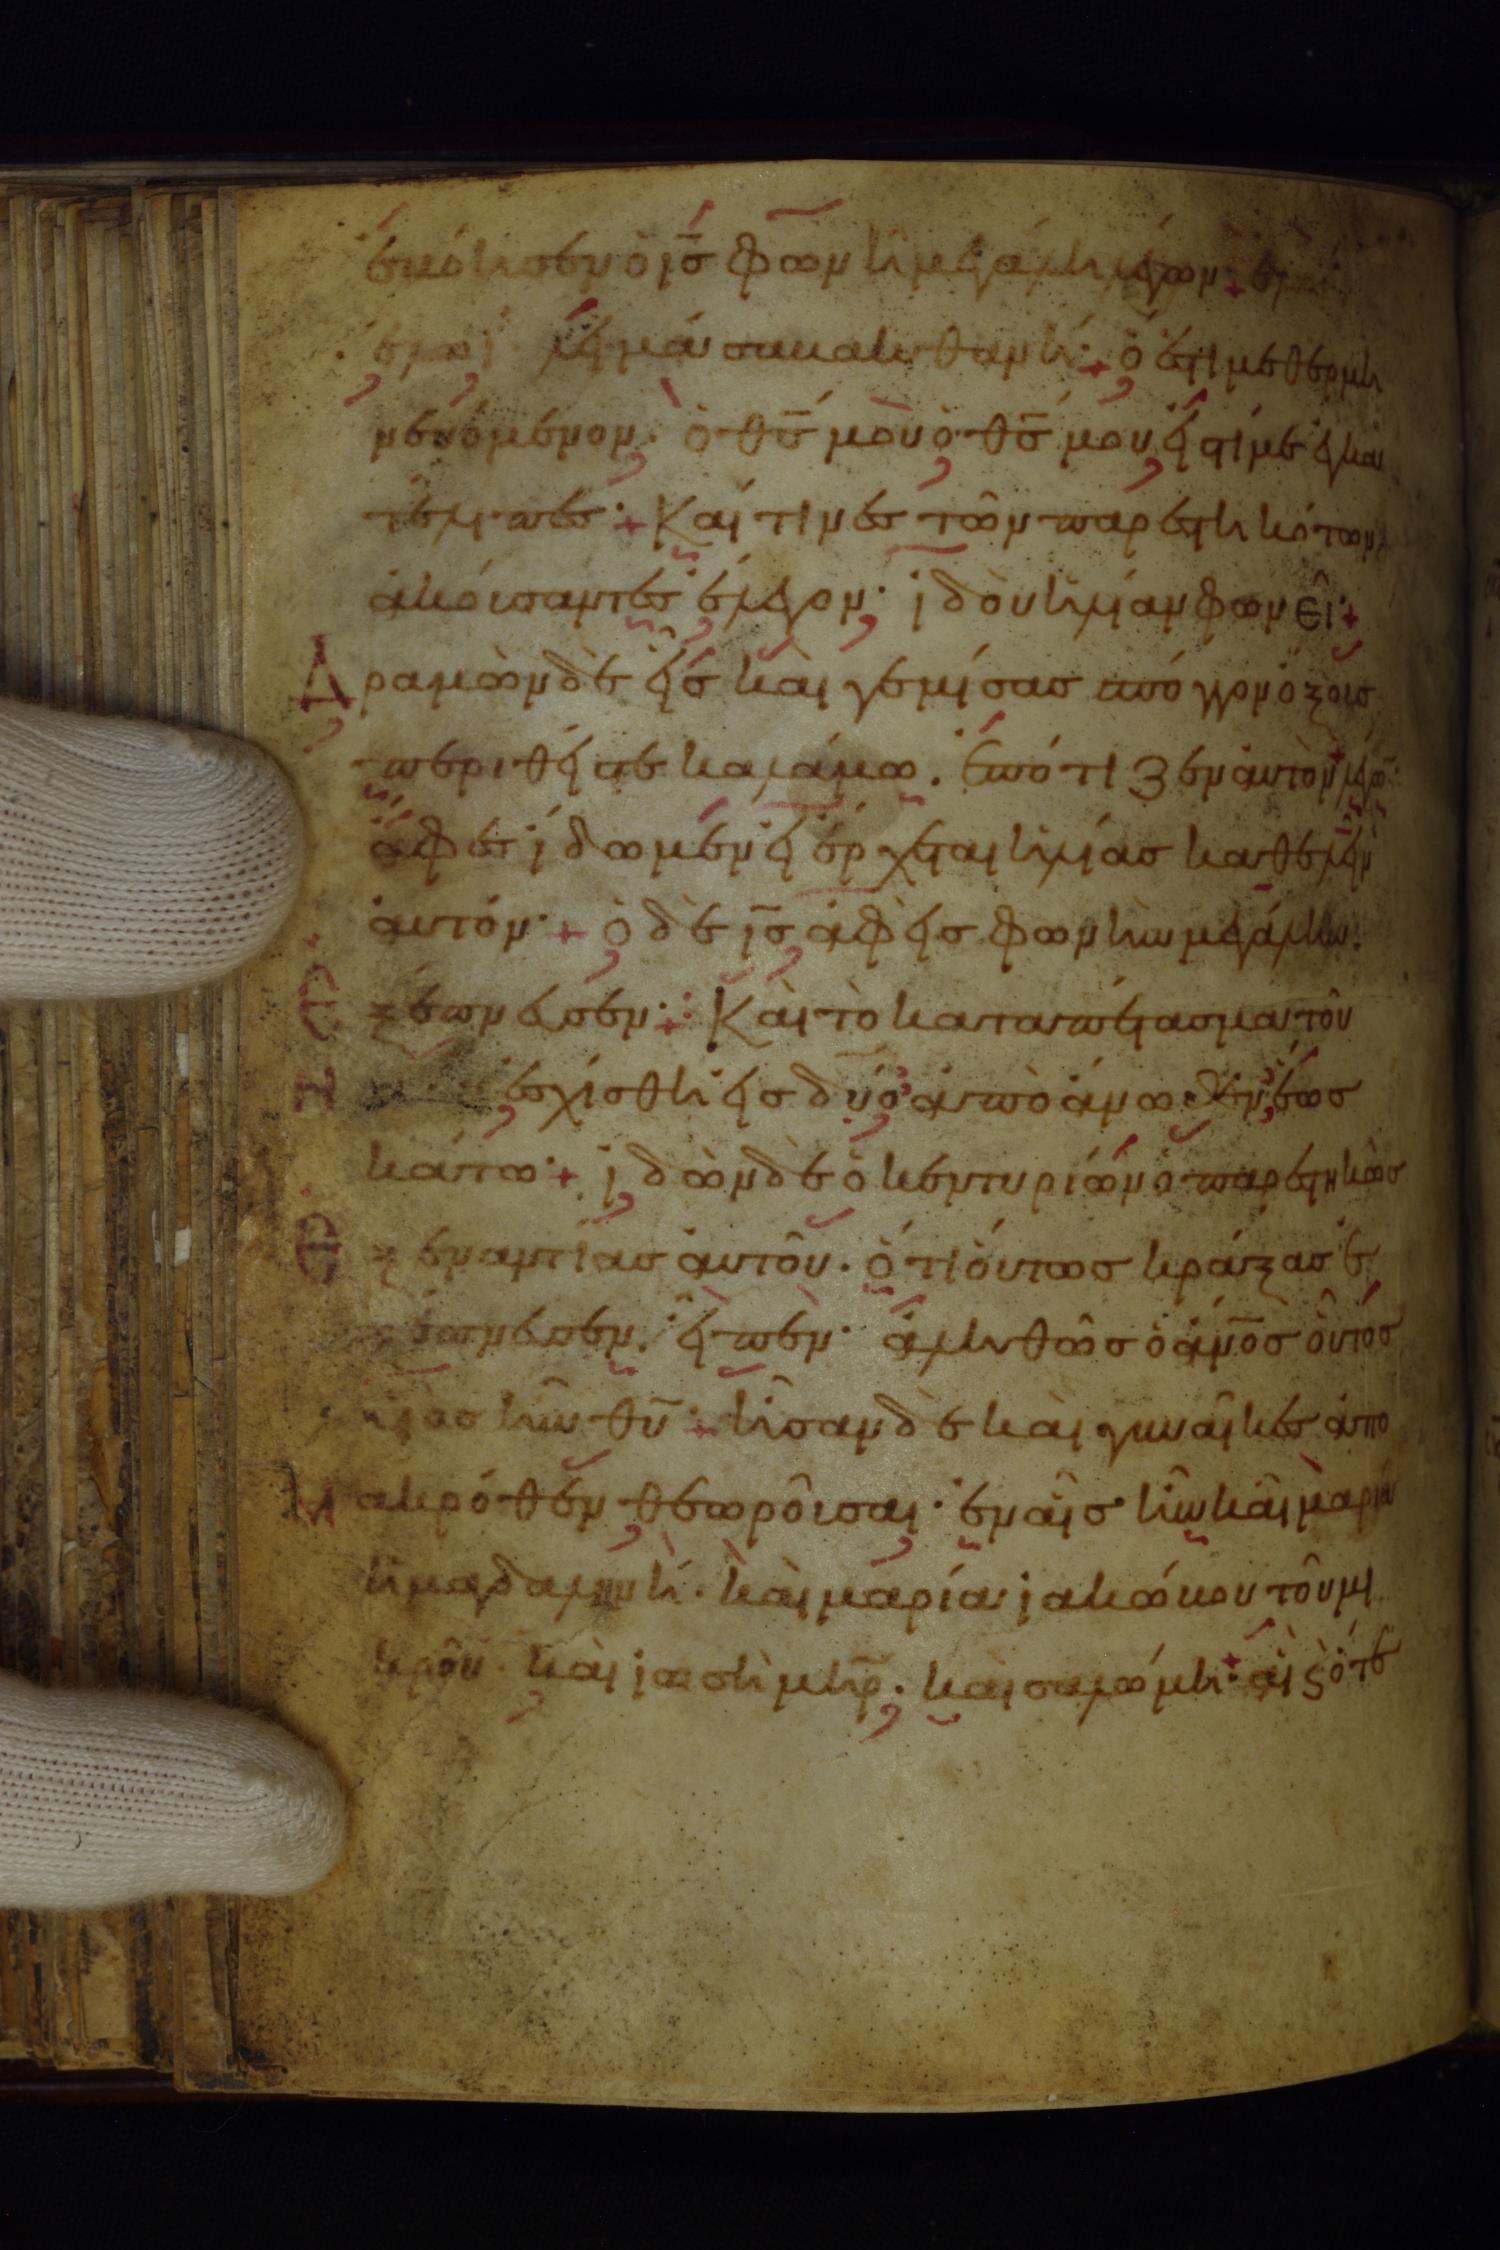 ἐβόησεν ὁ ις̅ φωνῆ μεγάλη λέγων + ελωὶ
ἐλωὶ λειμᾶ σαβαχθανη· + ὅ ἐστι μεθερμη
νευόμενον· ὁ θς̅ μου ὁ θς̅ μου εἰς τί με ἐγκα
τέλιπες· + Καί τινες τῶν παρεστηκότων
ἀκούσαντες ἔλεγον· ἰδοὺ ἠλίαν φωνεῖ· +
Δραμὼν δὲ εἷς καὶ γεμίσας σπόγγον ὄξους
περιθείς τε καλάμω. ἐπότιζεν αὐτὸν λέγω̅·
ἄφες ἴδωμεν εἰ ἔρχεται ἠλίας καθελεῖν
αὐτόν· + ὁ δὲ ις̅ ἀφεὶς φωνὴν μεγάλην.
Ἐξέπνευσεν· + Καὶ τὸ καταπέτασμα τοῦ
ἐσχίσθη εἰς δύο ἀπὸ ἄνωθεν ἕως
κάτω· + ἰδὼν δὲ ὁ κεντυρίων ὁ παρεστηκὼς
Ἐξεναντίας αὐτοῦ. ὅτι οὕτως κράξας ἐ
ξέπνευσεν. εἶπεν· ἀληθῶς ὁ ἀν̅ος οὗτος
υἱὸς ἦν θυ̅· + ἦσαν δὲ καὶ γυναῖκες ἀπο
Μακρόθεν θεωροῦσαι· ἐν αἷς ἦν καὶ μαρία
ἡ μαγδαληνή· καὶ μαρία ἰακώβου τοῦ μι
κροῦ· καὶ ἰωσὴ μη̅ρ. καὶ σαλώμη· + αἳ ὅτε